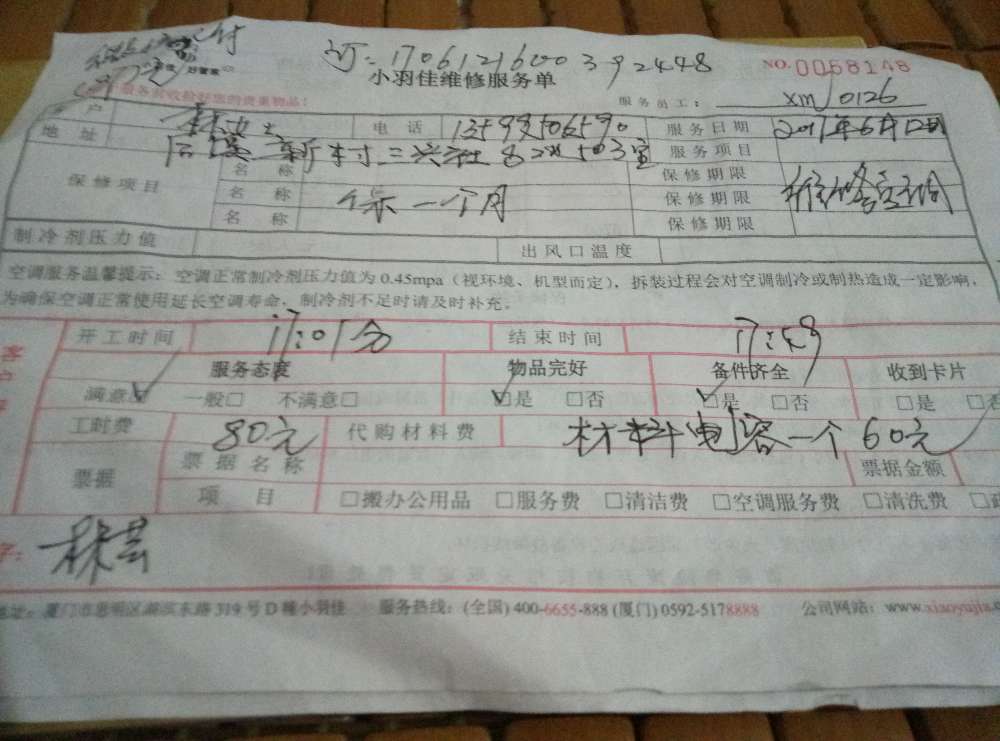 订:170612160039 2448
小羽佳维修服务单
NO.0058148
好管家
服务员工: xmJ0126
户 林女士 电话 服务日期 2017年6月12日
地址 新村三兴社 503室 服务项目 维修空调
保修项目 名称 保修期限
名称 保一个月 保修期限
名称 保修期限
制冷剂压力值 出风口温度
空调服务温馨提示:空调正常制冷剂压力值为0.45mpa(视环境、机型而定),拆装过程会对空调制冷或制热造成一定影响,
为确保空调正常使用延长空调寿命,制冷剂不足时请及时补充。
开工时间 17:01分 结束时间 17:49
服务态度 物品完好 备件齐全 收到卡片
满意☑ 一般□ 不满意□ ☑是 □否 ☑是 □否 □是 □否
工时费 80元 代购材料费 材料电容一个 60元
票据 票据名称 票据金额
项目 □搬办公用品 □服务费 □清洁费 □空调服务费 □清洗费
字: 林芸
地址:厦门市思明区湖滨东路319号D幢小羽佳 服务热线:(全国)400-6655-888(厦门)0592-5178888 公司网站:www.xiaoyujia.c